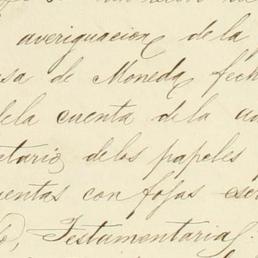 averiguacion de la
sa de Moneda fech
dela cuenta dela
etario delos papeles
uentas con fojas
Testamentaria